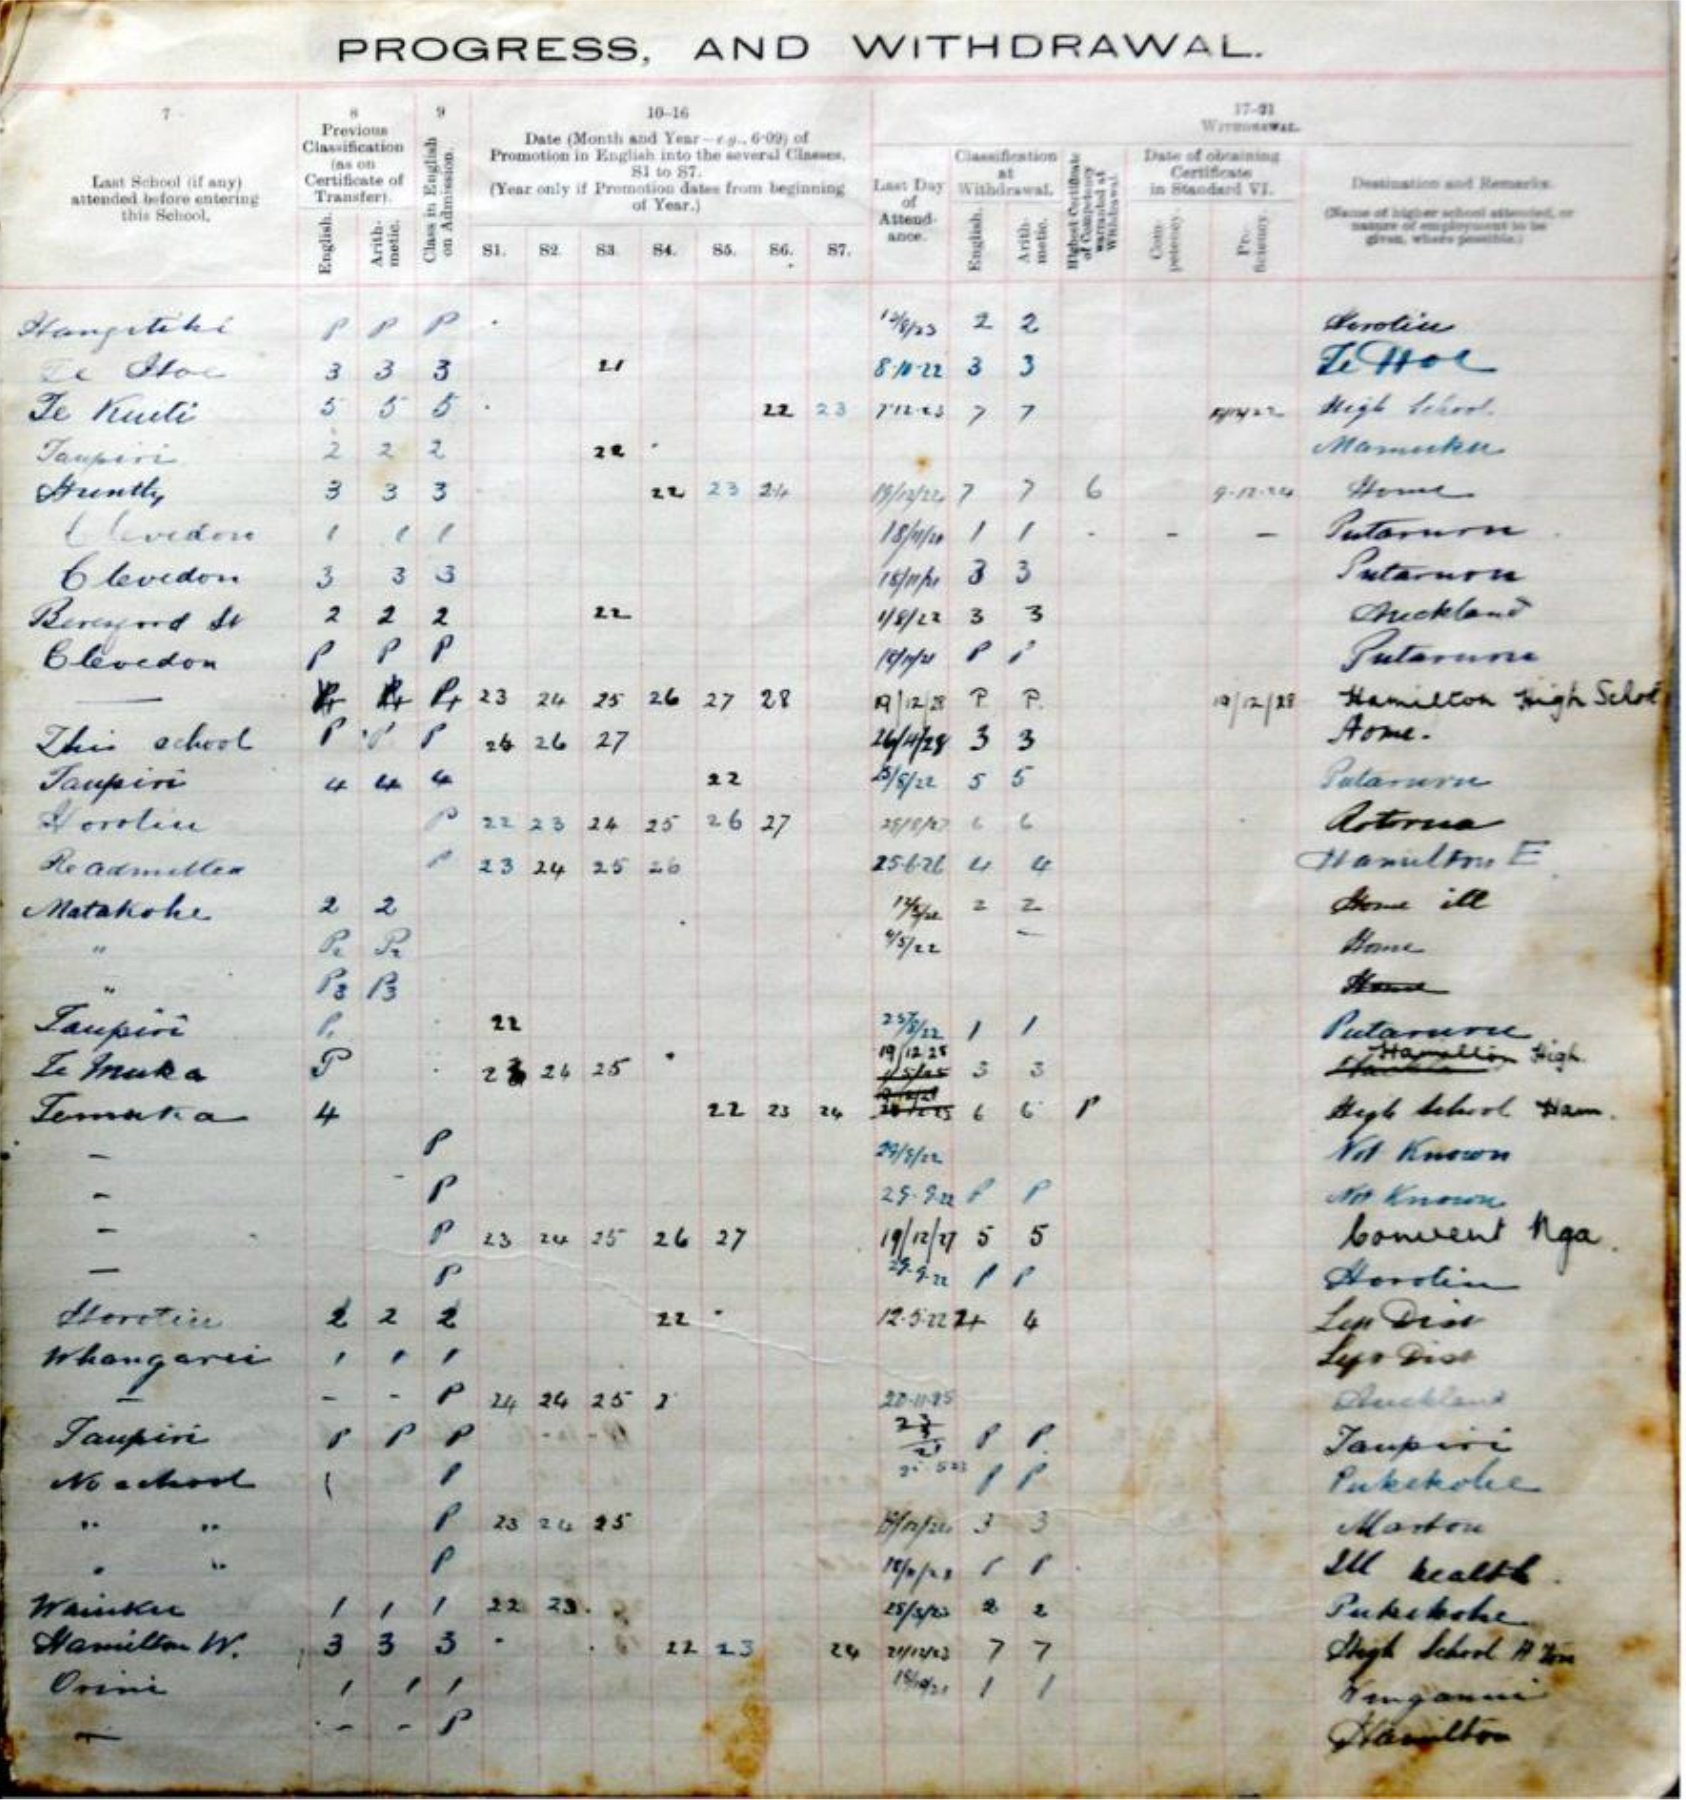 PROGRESS, AND WITHDRAWAL.
7 8 9 10-16 17-21
Last School (if any) attended before entering this School.
Previous Classification (as on Certificate of Transfer).
English. Arithmetic.
Class in English on Admission.
Date (Month and Year—e.g., 6·09) of Promotion in English into the several Classes, S1 to S7.
(Year only if Promotion dates from beginning of Year.)
S1. S2. S3. S4. S5. S6. S7.
Withdrawal.
Last Day of Attendance.
Classification at Withdrawal.
English. Arithmetic.
Highest Certificate of Competency warranted at Withdrawal.
Date of obtaining Certificate in Standard VI.
Competency. Proficiency.
Destination and Remarks.
(Name of higher school attended, or nature of employment to be given, where possible.)
Hangitiki P P P 2 2 Horotiu
Te Hoe 3 3 3 21 8·10·22 3 3 Te Hoe
Te Kuiti 5 5 5 22 23 7·12·23 7 7 High School.
Taupiri 2 2 2 22 Mamuku
Huntly 3 3 3 22 23 24 7 7 6 9-12-24 Home
Clevedon 1 1 1 1 1 - - - Putaruru
Clevedon 3 3 3 3 3 Putaruru
2 2 2 22 1/8/22 3 3 Auckland
Clevedon P P P P P Putaruru
— 23 24 25 26 27 28 19/12/28 P P. 19/12/28 Hamilton High School
This school P P P 26 27 3 3 Home.
Taupiri 4 4 4 22 5 5 Putaruru
Horotiu P 22 23 24 25 26 27 6 6 Rotorua
Readmitted P 23 24 25 26 25·6·26 4 4 Hamilton E
Matakohe 2 2 2 2 Home ill
" P2 P2 4/5/22 Home
" P3 P3 Home
Taupiri P. 22 1 1 Putaruru
Te Muka P 24 25 19/12 28 3 3 Hamilton High
Temuka 4 22 23 24 6 6 P High School Ham.
— P 29/9/22 Not Known
— P 29·9·22 P P Not Known
— P 23 24 25 26 27 19/12/27 5 5 Convent Nga.
— P 29·9·22 P P Horotiu
Horotiu 2 2 2 22 12·5·22 4 4 Left Dist
Whangarei 1 1 1 Left Dist
— - - P 24 24 25 Auckland
Taupiri P P P P P Taupiri
No school P P P Pukekohe
" " P 23 24 25 3 3 Marton
" " P P P Ill health.
Waiuku 1 1 1 22 23. 2 2 Pukekohe
Hamilton W. 3 3 3 22 23 24 21/12/23 7 7 High School
Orini 1 1 1 1 1
— - - P Hamilton